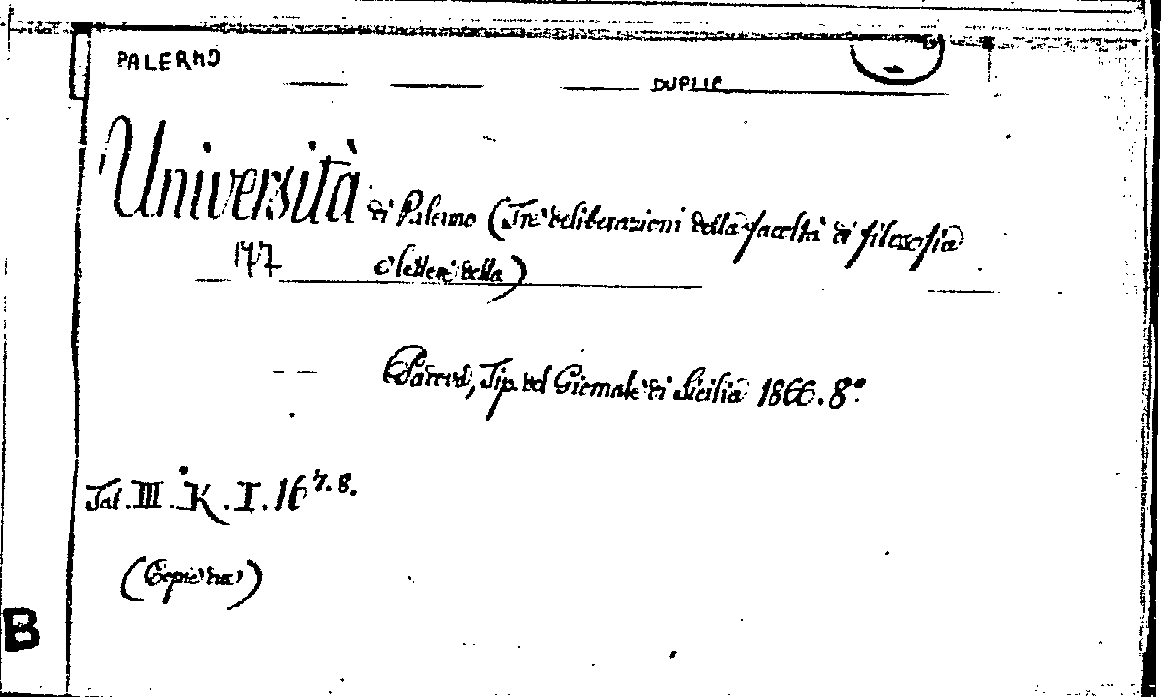 PALERMO
DUPLIC
Università di Palermo (Tre deliberazioni della facoltà di filosofia
147 e lettere della)
Palermo, Tip. del Giornale di Sicilia 1866. 8.°
Sal. III. K. I. 16 7. 8.
(Copie due)
B